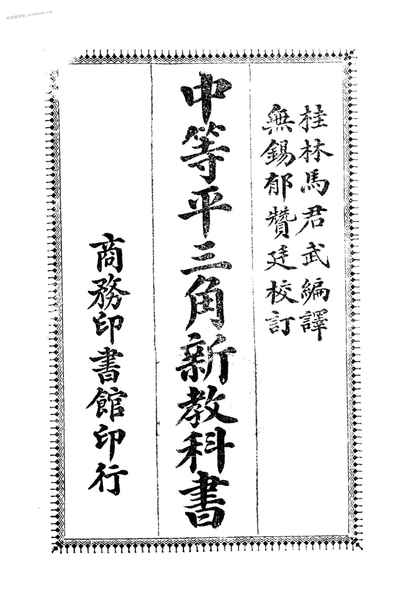 桂林馬君武編譯
無錫郁贊廷校訂
中等平三角新教科書
商務印書館印行